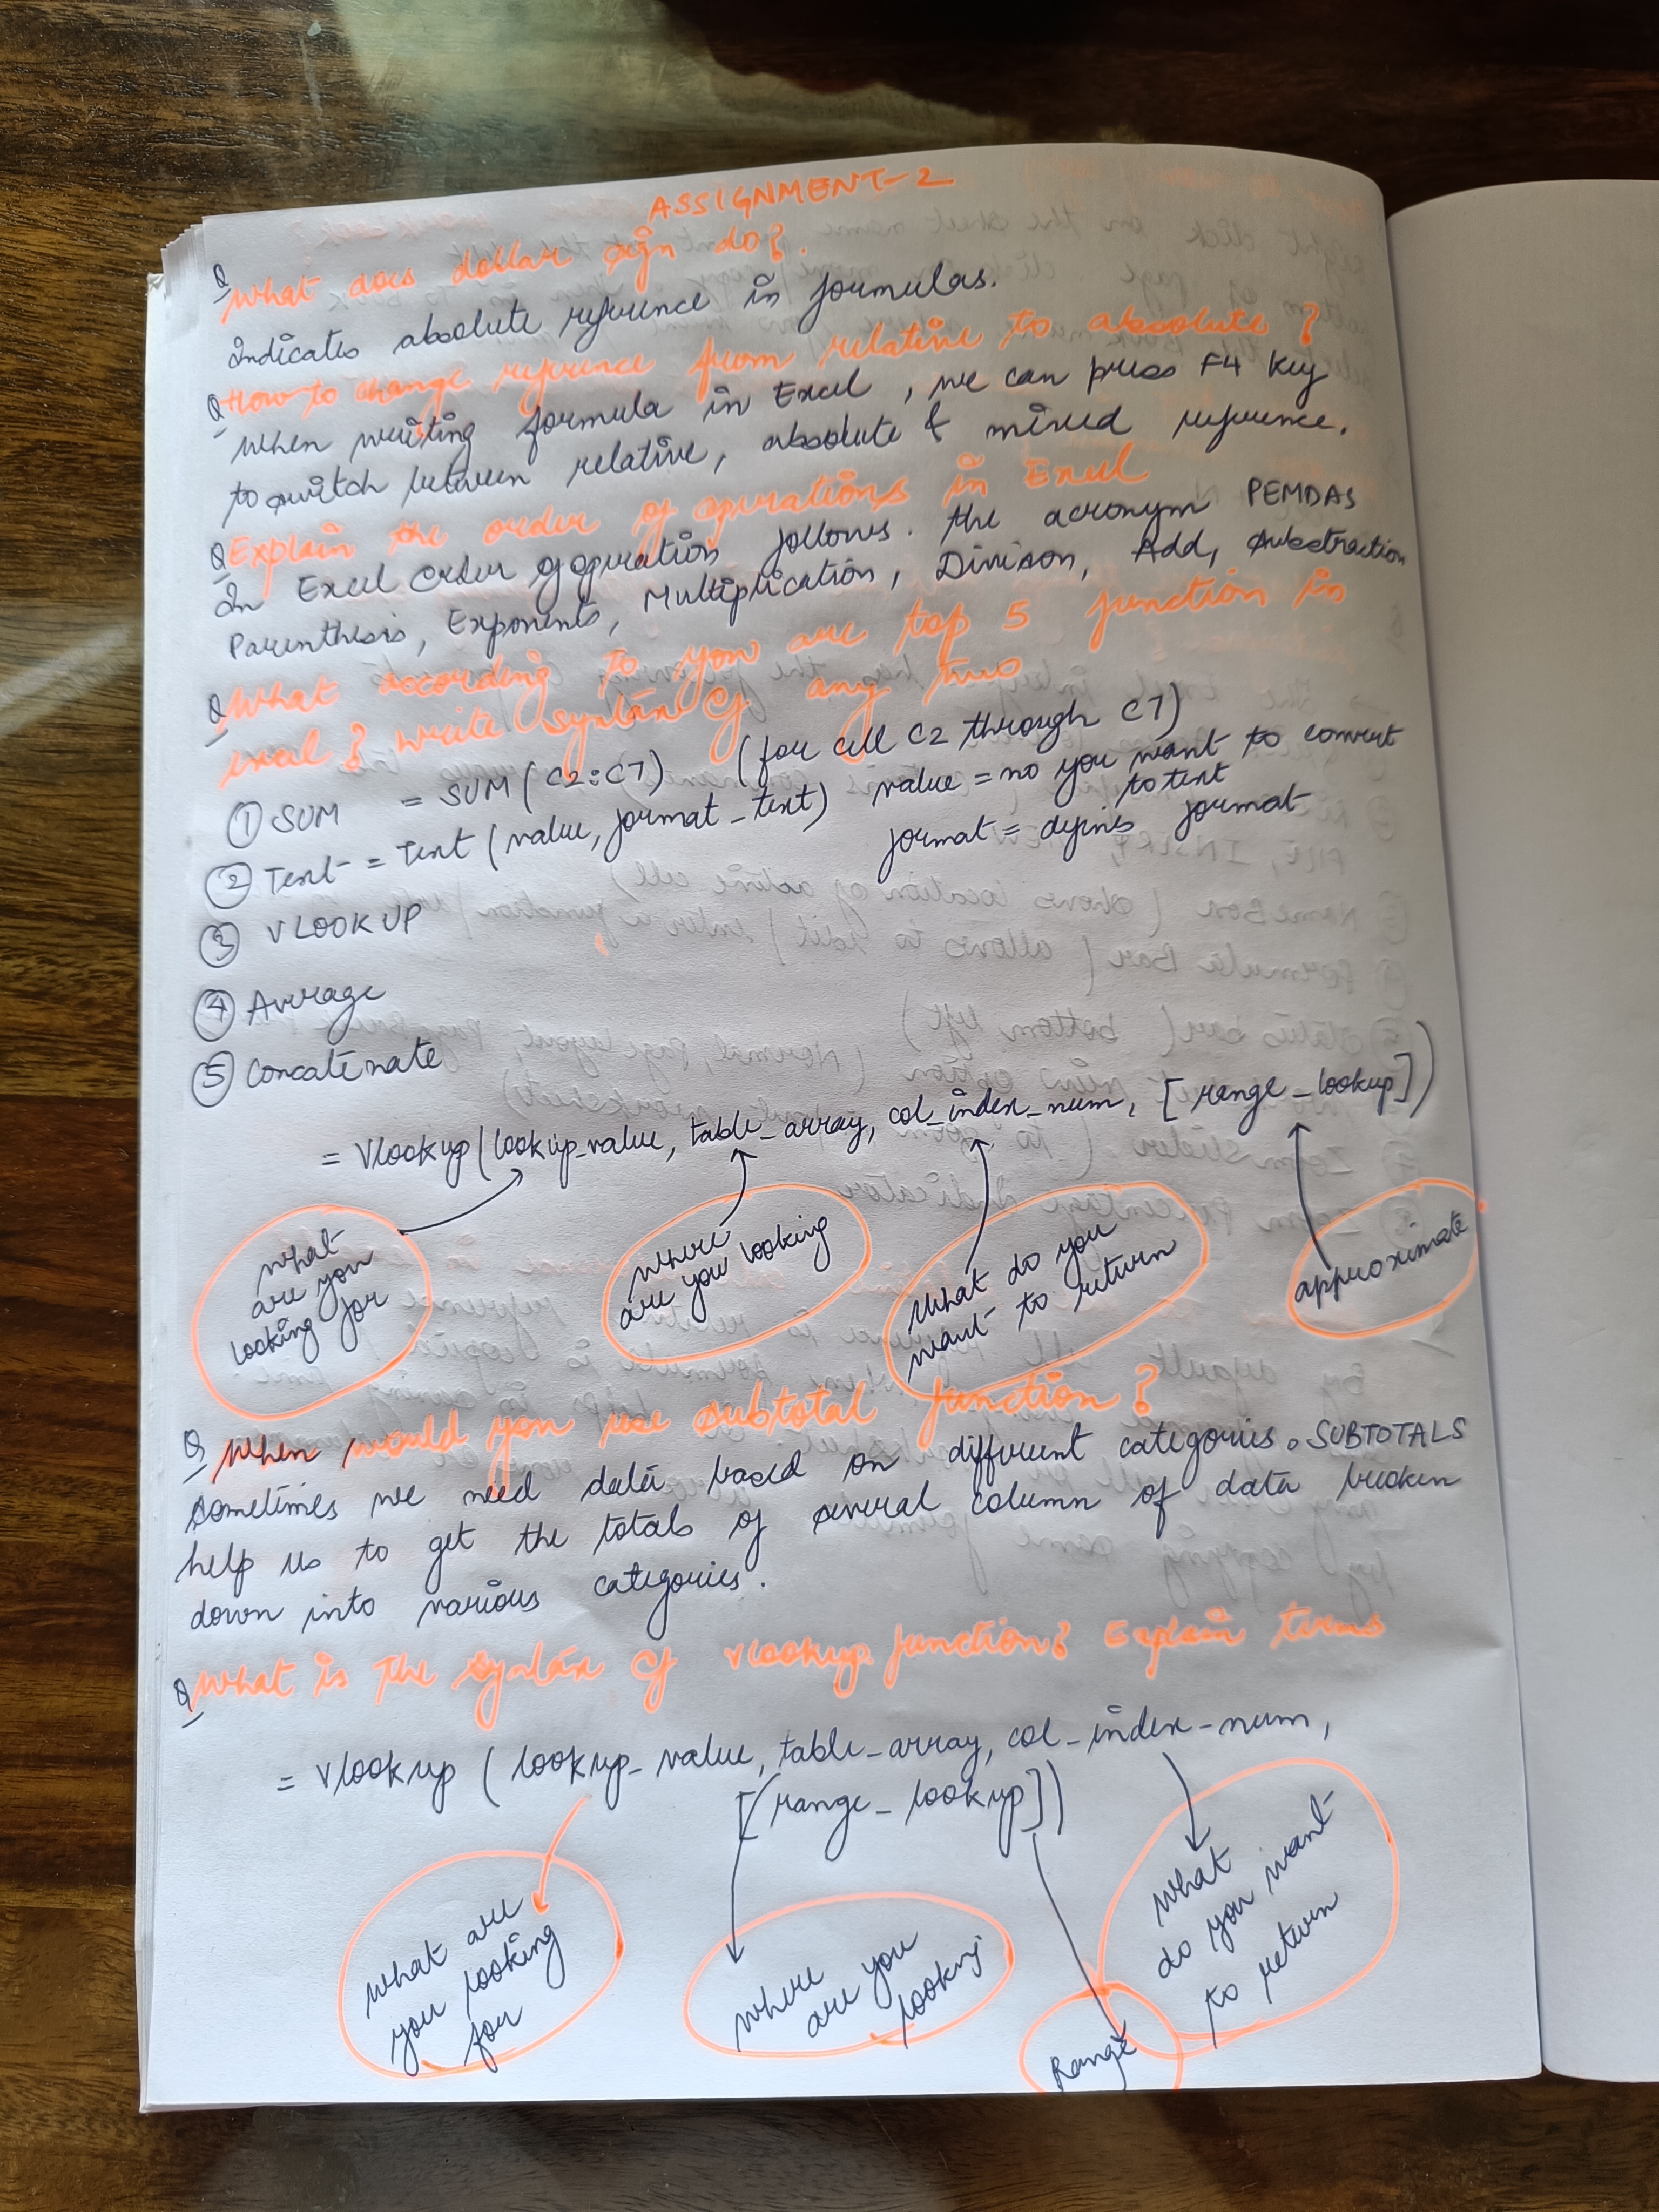 ASSIGNMENT-2
Q What does dollar sign do?
Indicates absolute reference in formulas.
Q How to change reference from relative to absolute?
When writing formula in Excel, we can press F4 key
to switch between relative, absolute & mixed reference.
Q Explain the order of operations in Excel
In Excel order of operation follows. the acronym PEMDAS
Parenthesis, Exponents, Multiplication, Divison, Add, substraction
Q What according to you are top 5 function in
excel? write syntax of any two
① SUM = SUM(C2:C7) (for cell C2 through C7)
② Text = Text (value, format_text) value = no you want to convert
to text
format = defines format
③ VLOOKUP
④ Average
⑤ Concatenate
= Vlookup(lookup_value, table_array, col_index_num, [range_lookup])
what
are you
looking for
where
are you looking
What do you
want to return
approximate
Q When would you use subtotal function?
sometimes we need data based on different categories. SUBTOTALS
help us to get the totals of several column of data broken
down into various categories.
Q What is the syntax of vlookup function? Explain terms
= Vlookup (lookup_value, table_array, col_index-num,
[(range_lookup])
what are
you looking
for
where
are you
looking
Range
what
do you want
to return